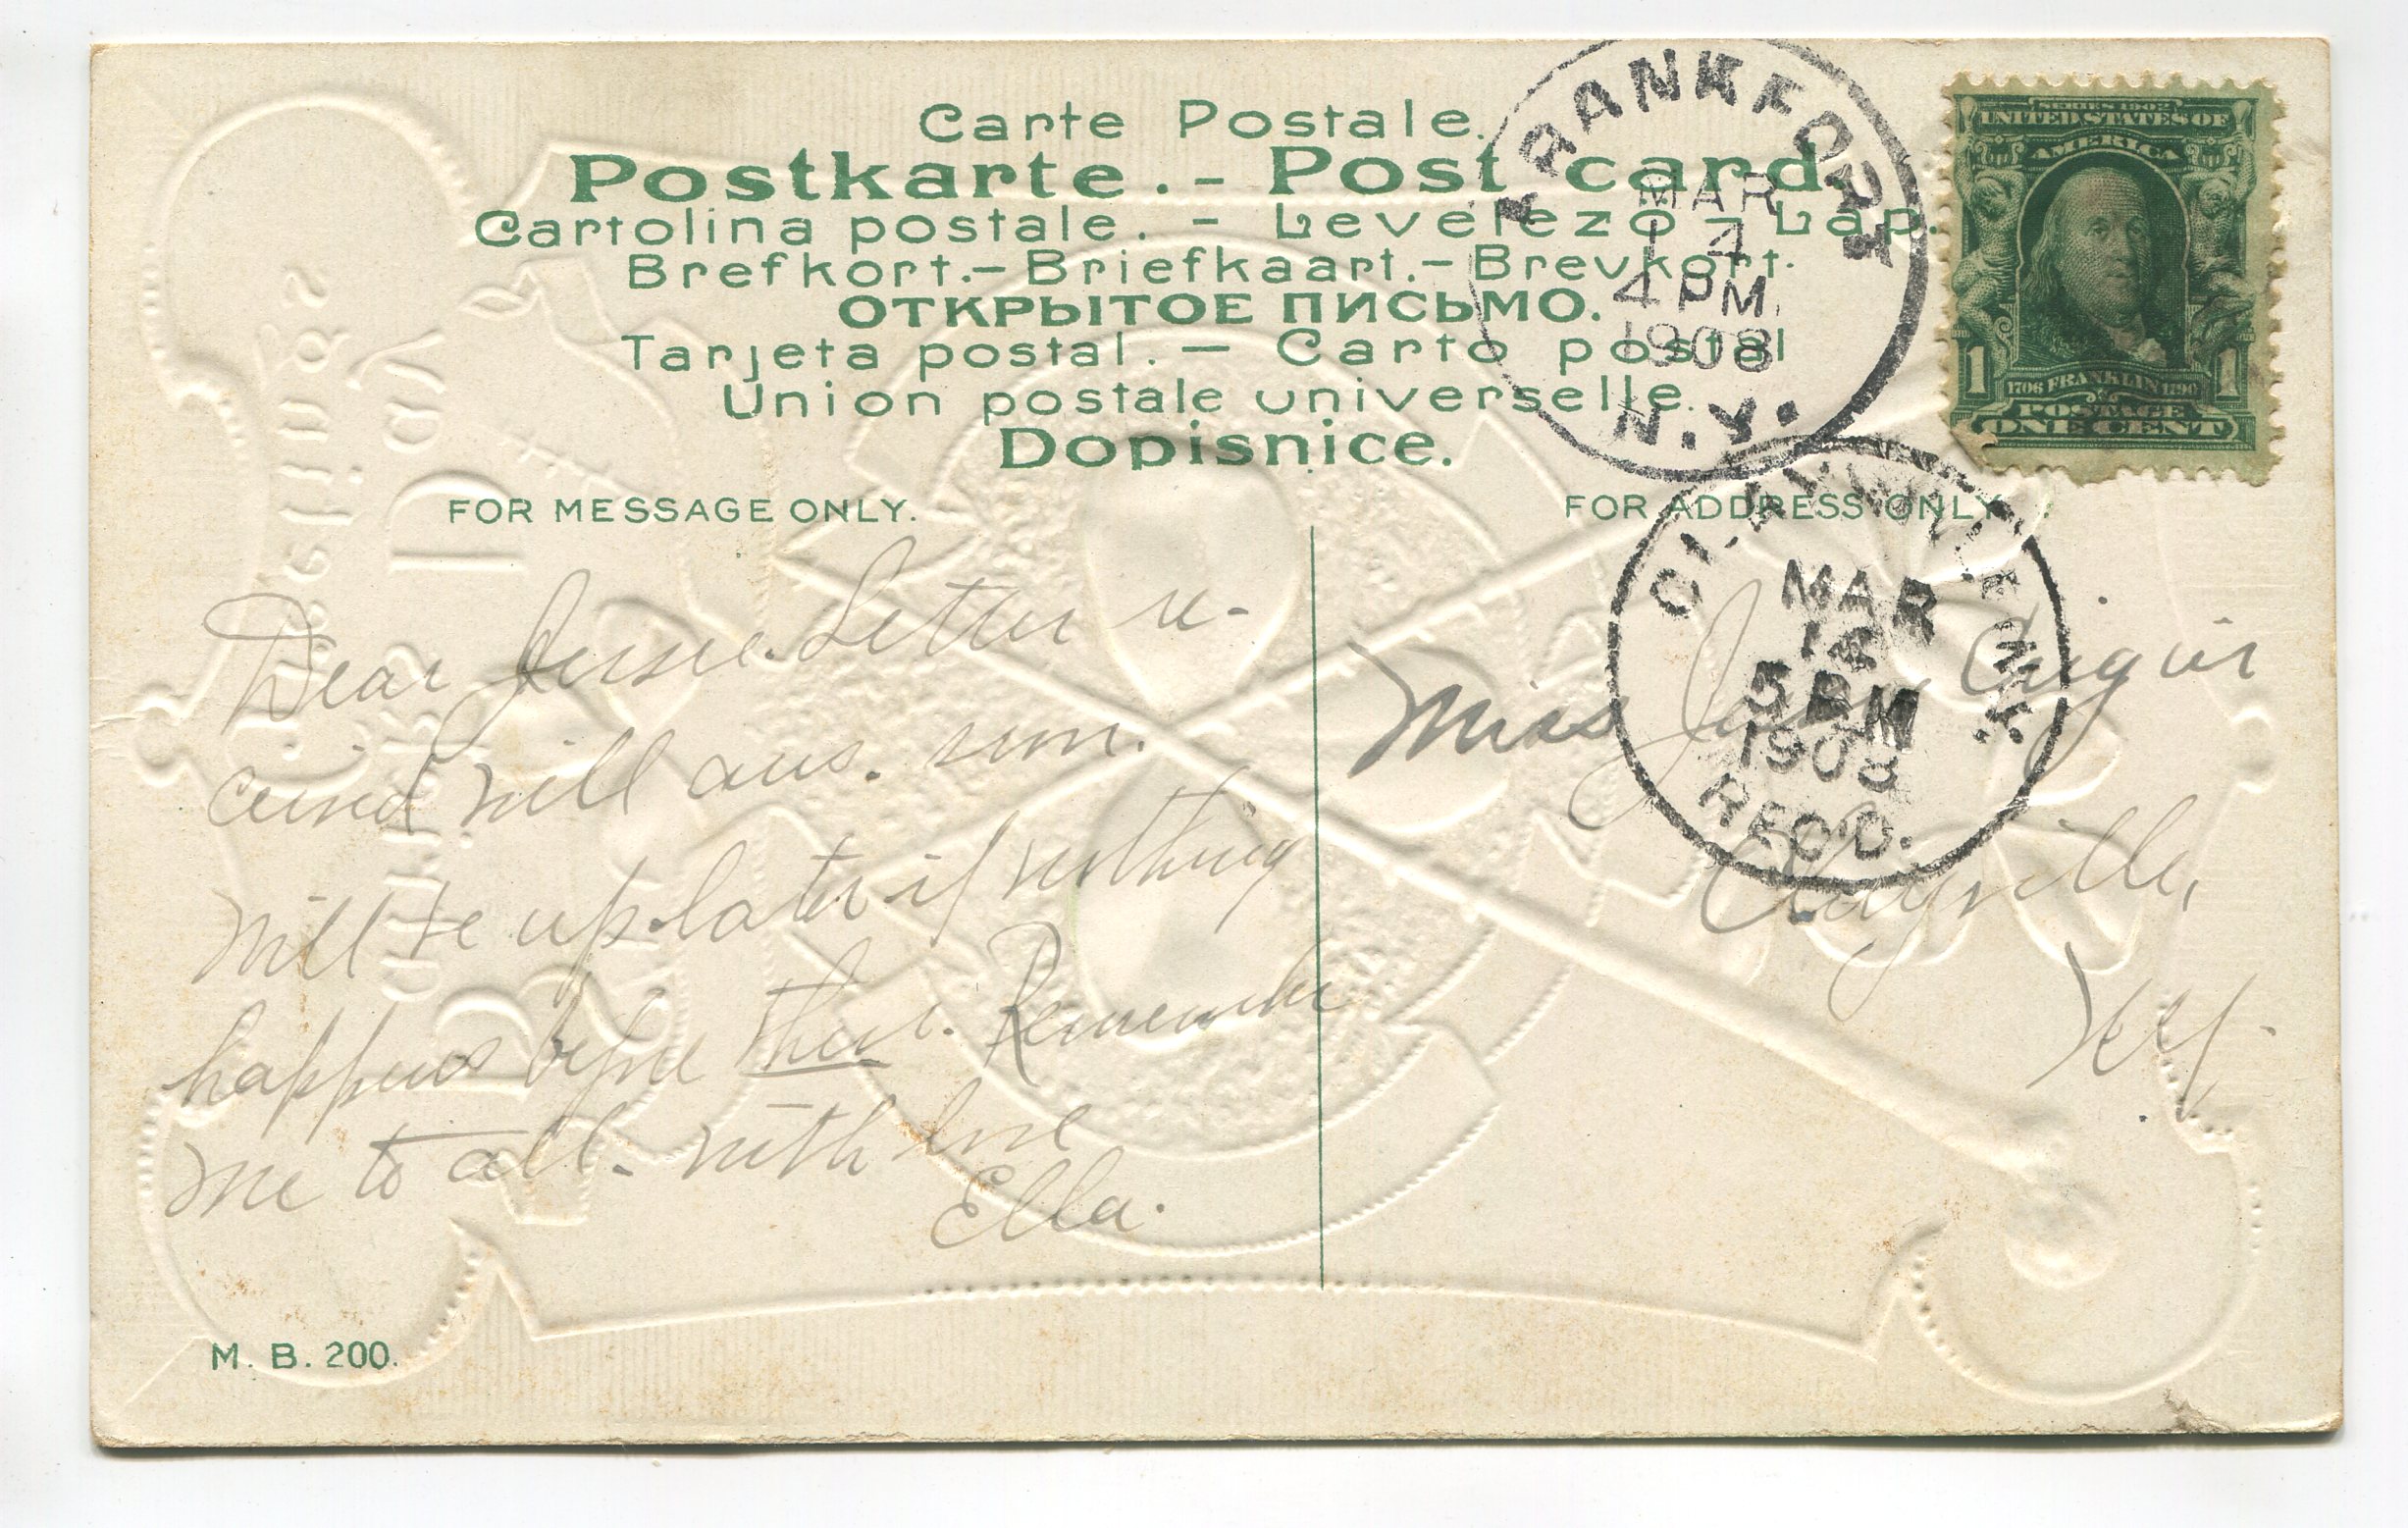 Carte Postale.
Postkarte. - Post card.
Cartolina postale. - Levelezo - Lap.
Brefkort. - Briefkaart. - Brevkort.
ОТКРЫТОЕ ПИСЬМО.
Tarjeta postal. - Carto postal
Union postale universelle.
Dopisnice.
FRANKFORT
MAR
14
4 PM
1908
N.Y.
SERIES 1902
UNITED STATES OF
AMERICA
1 1
1706 FRANKLIN 1790
POSTAGE
ONE CENT
FOR MESSAGE ONLY.
FOR ADDRESS ONLY.
MAR
14
5 PM
1908
REC'D.
Dear Jessie. Letter re-
ceived will ans. soon.
Will be up later if nothing
happens before then. Remember
me to all. With love
Ella.
Miss
Clayville,
N.Y.
M. B. 200.